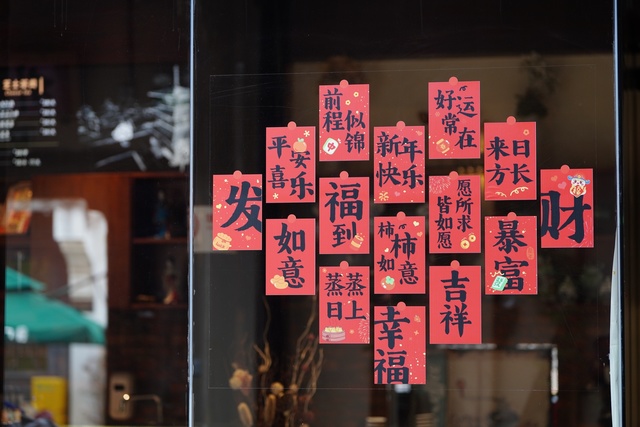 前程似锦
好运常在
平安喜乐
新年快乐
来日方长
发
福到
愿所求皆如愿
财
如意
柿柿如意
暴富
蒸蒸日上
吉祥
幸福